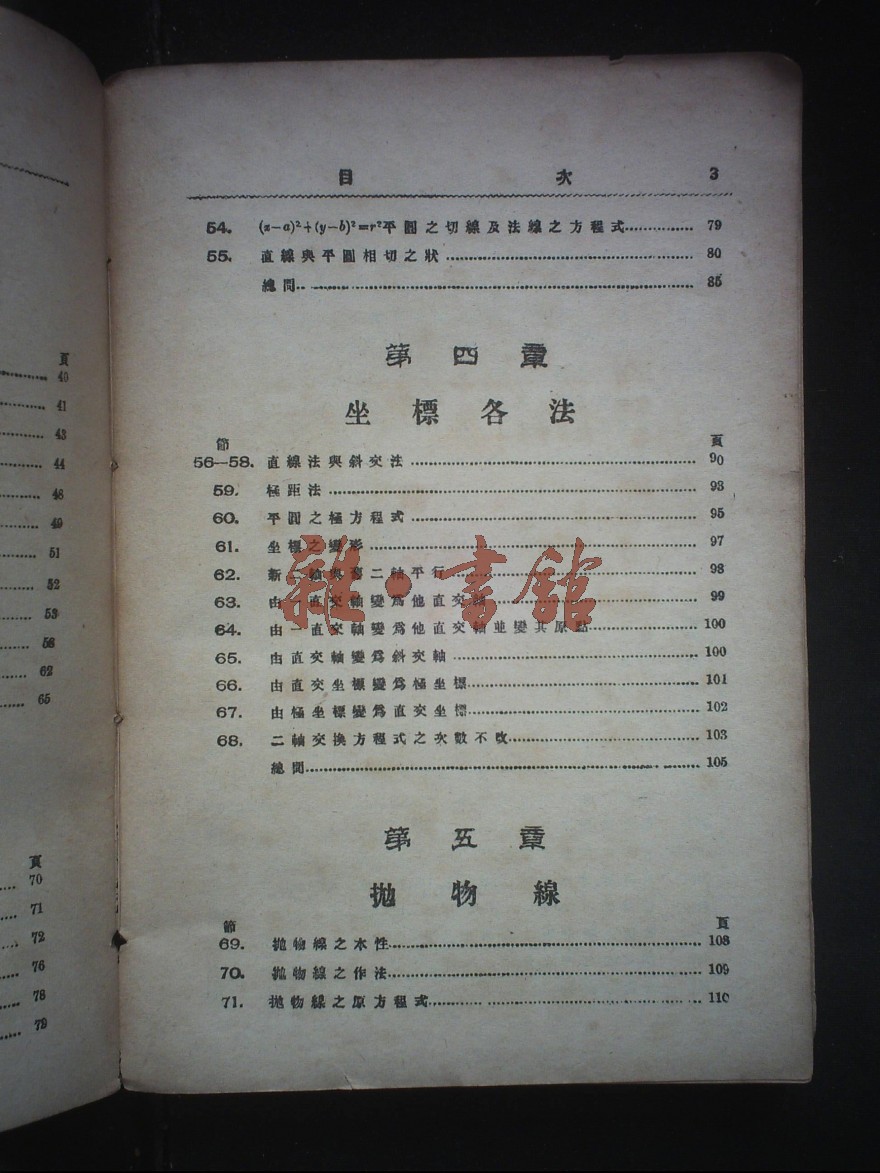 頁
40
41
43
44
48
49
51
52
53
56
62
65
頁
70
71
72
76
78
79
目 次 3
54. (x-a)²+(y-b)²=r²平圓之切線及法線之方程式 79
55. 直線與平圓相切之狀 80
總問 85
第四章
坐標各法
節 頁
56—58. 直線法與斜交法 90
59. 極距法 93
60. 平圓之極方程式 95
61. 坐標之變形 97
62. 新二軸與舊二軸平行 98
63. 由一直交軸變爲他直交軸 99
64. 由一直交軸變爲他直交軸並變其原點 100
65. 由直交軸變爲斜交軸 100
66. 由直交坐標變爲極坐標 101
67. 由極坐標變爲直交坐標 102
68. 二軸交換方程式之次數不改 103
總問 105
第五章
拋物線
節 頁
69. 拋物線之本性 108
70. 拋物線之作法 109
71. 拋物線之原方程式 110
雜·書館